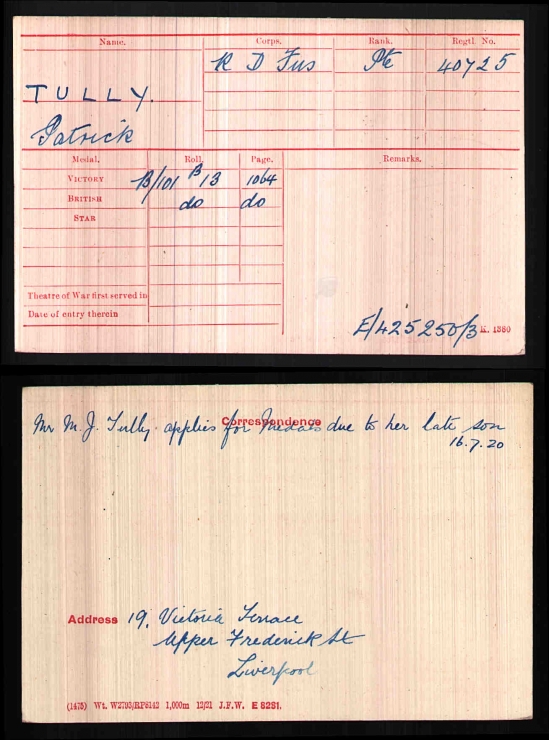 Name.
Corps.
Rank.
Regtl. No.
R D Fus
Pte
40725
TULLY.
Patrick
Medal.
Roll.
Page.
Remarks.
VICTORY
B/101 B 13
1064
BRITISH
do
do
STAR
Theatre of War first served in
Date of entry therein
E/425250/3
K. 1380
Correspondence
Mr M. J. Tully applies for Medals due to her late son
16.7.20
Address 19, Victoria Terrace
Upper Frederick St
Liverpool
(1475) Wt. W2793/RP6142 1,000m 12/21 J.F.W. E 8281.